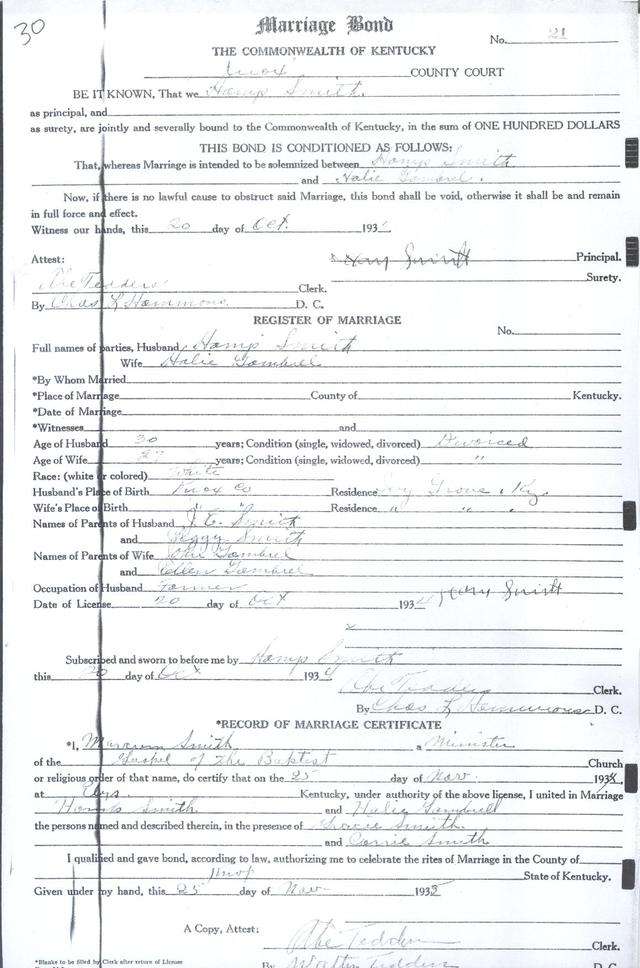 30
Marriage Bond
No. 21
THE COMMONWEALTH OF KENTUCKY
Knox COUNTY COURT
BE IT KNOWN, That we Hamp Smith.
as principal, and
as surety, are jointly and severally bound to the Commonwealth of Kentucky, in the sum of ONE HUNDRED DOLLARS
THIS BOND IS CONDITIONED AS FOLLOWS:
That, whereas Marriage is intended to be solemnized between Hamp Smith
and Halie Gambrel.
Now, if there is no lawful cause to obstruct said Marriage, this bond shall be void, otherwise it shall be and remain
in full force and effect.
Witness our hands, this 20 day of Oct. 193
Attest: Principal.
Surety.
Abe Tedders Clerk.
By Chas L Hammons D. C.
REGISTER OF MARRIAGE
No.
Full names of parties, Husband Hamp Smith
Wife Halie Gambrel
*By Whom Married
*Place of Marriage County of Kentucky.
*Date of Marriage
*Witnesses and
Age of Husband 30 years; Condition (single, widowed, divorced) Divorced
Age of Wife 27 years; Condition (single, widowed, divorced) "
Race: (white or colored) White
Husband's Place of Birth Knox Co Residence Grove, Ky
Wife's Place of Birth " " Residence " " .
Names of Parents of Husband J. E. Smith
and Peggy Smith
Names of Parents of Wife Gambrel
and Ellen Gambrel
Occupation of Husband Farmer
Date of License 20 day of Oct 193
x
Subscribed and sworn to before me by Hamp Smith
this 20 day of Oct 193
Abe Tedders Clerk.
By Chas L Hammons D. C.
*RECORD OF MARRIAGE CERTIFICATE
*I, Smith a Minister
of the Gospel of the Baptist Church
or religious order of that name, do certify that on the 25 day of Nov. 193
at Elys. Kentucky, under authority of the above license, I united in Marriage
Smith and Halie Gambrell
the persons named and described therein, in the presence of Smith
and Carrie Smith
I qualified and gave bond, according to law, authorizing me to celebrate the rites of Marriage in the County of
Knox State of Kentucky.
Given under my hand, this 25 day of Nov 193
A Copy, Attest:
Abe Tedders Clerk.
*Blanks to be filled by Clerk after return of License
By Walter Tedders D. C.